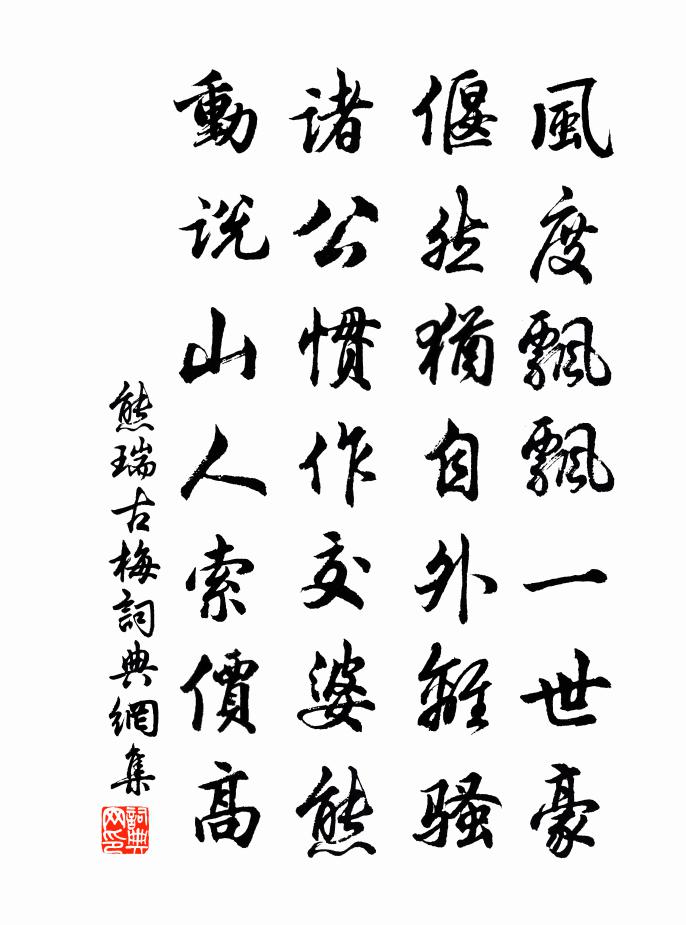 風度飄飄一世豪
偃然猶自外離騷
諸公慣作交婆熊
動説山人索價高
熊瑞古梅詞典網集
詞典网印